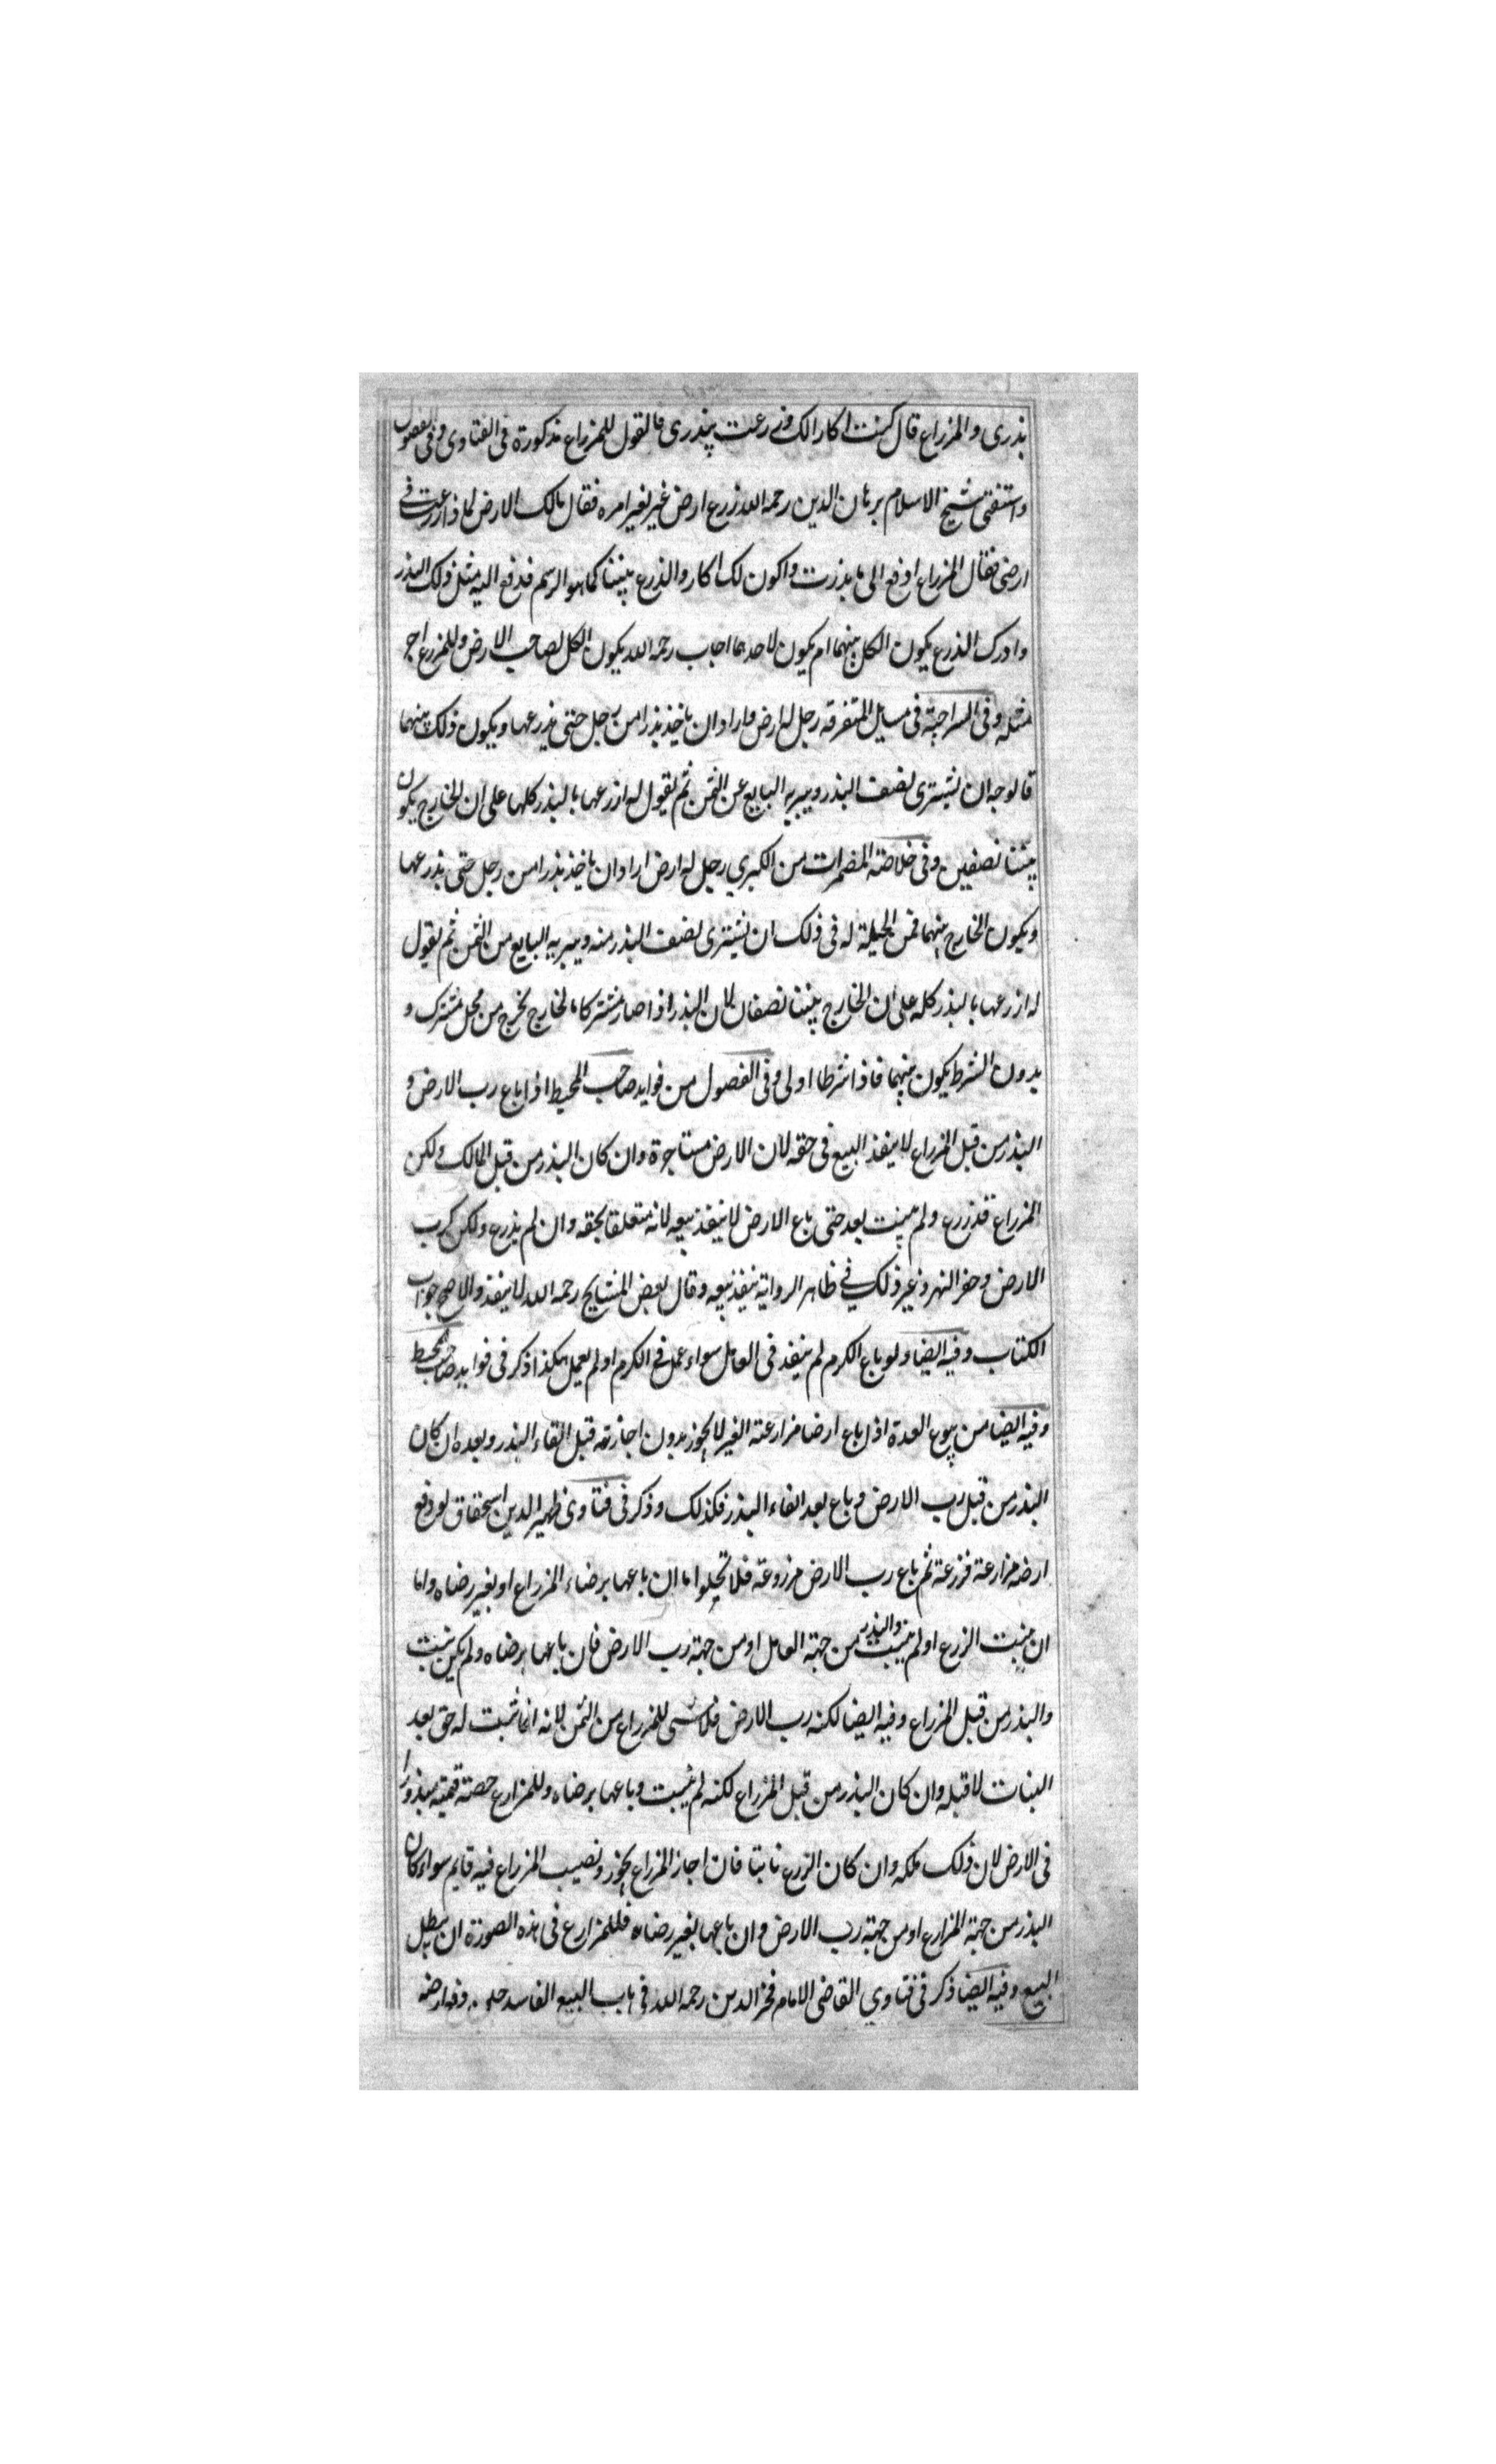 بذرى والمزراع قال كنت اكارالك وزرعت ببذرى فالقول للمزراع مذكورة فى الفتاوى وفى الفصول
واستفتى شيخ الاسلام برهان الدين رحمه الله زرع ارض غير بغير امره فقال مالك الارض لماذا زرعت فى
ارضى فقال المزراع ادفع الى ما بذرت واكون لك اكار والذرع بيننا كما هو الرسم فدفع اليه مثل ذلك البذر
وادرك الذرع يكون الكل بينهما ام يكون لاحدهما اجاب رحمه الله يكون الكل لصاحب الارض وللمزرع اجر
مثله وفى السراجية فى مسايل المتفرقه رجل له ارض واراد ان ياخذ بذرا من رجل حتى يذرعها ويكون ذلك بينهما
قالوجه ان يشترى نصف البذر ويبريه البايع عن الثمن ثم يقول له ازرعها بالبذر كلها على ان الخارج يكون
بيننا نصفين وفى خلاصة المضمرات من الكبرى رجل له ارض اراد ان ياخذ بذرا من رجل حتى يذرعها
ويكون الخارج بينهما فمن الحيلة له فى ذلك ان يشترى نصف البذر منه ويبريه البايع من الثمن ثم يقول
له ازرعها بالبذر كله على ان الخارج بيننا نصفان لان البذر اذا صار مشتركا فالخارج يخرج من محل مشترك و
بدون الشرط يكون بينهما فاذا شرطا اولى وفى الفصول من فوايد صاحب المحيط اذا باع رب الارض و
البذر من قبل المزراع لا ينفذ البيع فى حقه لان الارض مستاجرة وان كان البذر من قبل المالك ولكن
المزراع قد زرع ولم ينبت بعد حتى باع الارض لا ينفذ بيعه لانه متعلقا بحقه وان لم يذرع ولكن كرب
الارض وحفر النهر وغير ذلك فى ظاهر الرواية ينفذ بيعه وقال بعض المشايخ رحمه الله لا ينفذ والاصح جواب
الكتاب وفيه ايضا ولو باع الكرم لم ينفذ فى العامل سواء عمل فى الكرم او لم يعمل هكذا ذكر فى فوايد صاحب المحيط
وفيه ايضا من بيوع العدة اذا باع ارضا مزارعة الغير لا يجوز بدون اجازته قبل القاء البذر وبعده ان كان
البذر من قبل رب الارض وباع بعد القاء البذر فكذلك وذكر فى فتاوى ظهير الدين اسحقاق لو دفع
ارضه مزارعة فزرعة ثم باع رب الارض مزروعة فلا تخلوا ما ان باعها برضاء المزراع او بغير رضاه واما
ان ينبت الزرع او لم ينبت والبذر من جهة العامل او من جهة رب الارض فان باعها برضاه ولم يكن ينبت
والبذر من قبل المزراع وفيه ايضا لكنه رب الارض فلا شى للمزراع من الثمن لانه انما ثبت له حق بعد
النبات لا قبله وان كان البذر من قبل المزراع لكنه لم ينبت وباعها برضاه وللمزارع حصته قيمته مبذورا
فى الارض لان ذلك ملكه وان كان الزرع نابتا فان اجاز المزراع يجوز ونصيب المزراع فيه قايم سواء كان
البذر من جهة المزارع او من جهة رب الارض وان باعها بغير رضاه فللمزارع فى هذه الصورة ان يبطل
البيع وفيه ايضا ذكر فى فتاوى القاضى الامام فخر الدين رحمه الله فى باب البيع الفاسد رجل دفع ارضه